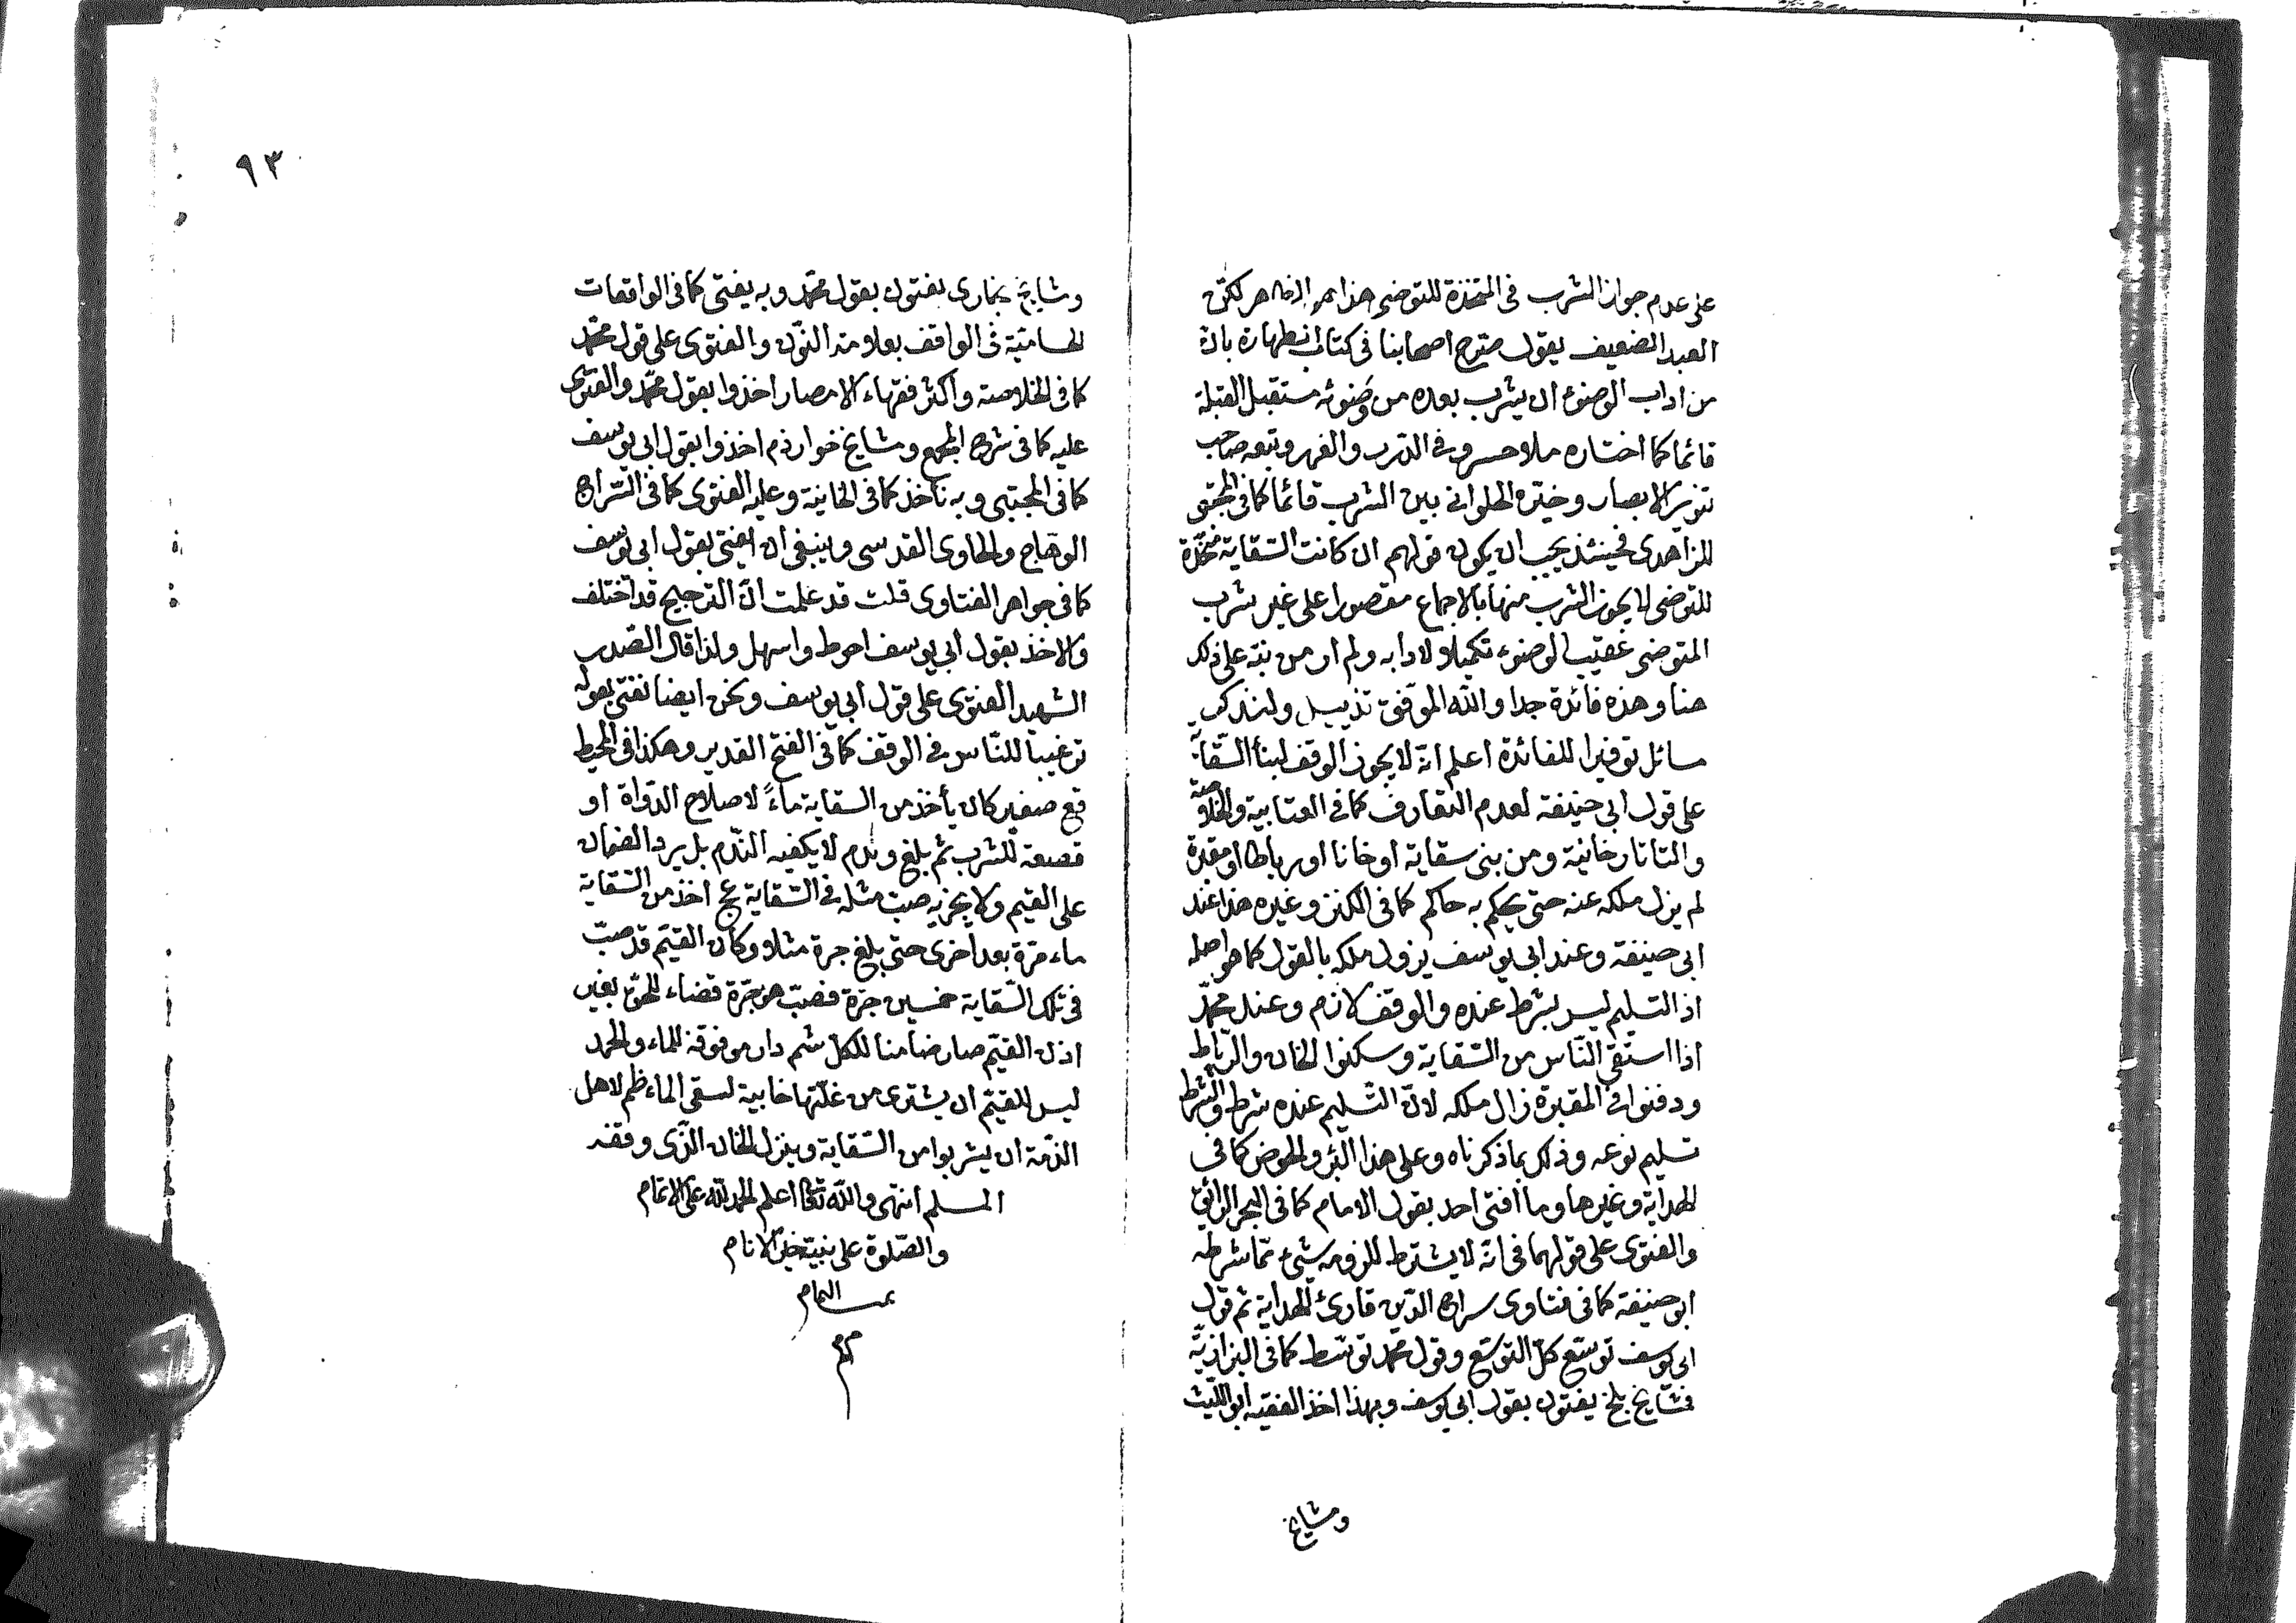 على عدم جواز الشرب في المتخذة للتوضي هذا هو الظاهر لكن
العبد الضعيف يقول صرح اصحابنا في كتاب الطهارة بان
من اداب الوضوء ان يشرب بعده من وضوئه مستقبل القبلة
قائما كما اختاره ملا خسرو في الدرر والغرر وتبعه صاحب
تنوير الابصار وخيره الحلواني بين الشرب قائما كما في المجتبى
للزاهدى فحينئذ يجب ان يكون قولهم ان كانت السقاية متخذة
للتوضى لا يجوز الشرب منها بالاجماع مقصورا على غير شرب
المتوضى عقيب الوضوء تكميلا لادابه ولم ار من نبه على ذلك
هنا وهذه فائدة جدا والله الموفق تذييل ولنذكر
مسائل توفيرا للفائدة اعلم انه لا يجوز الوقف لبنأ السقاية
على قول ابى حنيفة لعدم التعارف كما في العتابية والخلاصة
والتاتارخانية ومن بنى سقاية او خانا او رباطا او مقبرة
لم يزل ملكه عنه حتى يحكم به حاكم كما في الكنز وغيره هذا عند
ابى حنيفة وعند ابى يوسف يزول ملكه بالقول كما هو اصله
اذ التسليم ليس بشرط عنده والوقف لازم وعند محمد
اذا استقى الناس من السقاية وسكنوا الخان والرباط
ودفنوا في المقبرة زال ملكه لان التسليم عنده شرط والشرط
تسليم نوعه وذلك بما ذكرناه وعلى هذا البئر والحوض كما في
الهداية وغيرها وما افتى احد بقول الامام كما في البحر الرائق
والفتوى على قولهما في انه لا يشترط للزومه شئ مما شرطه
ابو حنيفة كما في فتاوى سراج الدين قارئ الهداية ثم قول
ابى يوسف توسع كل التوسع وقول محمد توسط كما في البزازية
فمشايخ بلخ يفتون بقول ابى يوسف وبهذا اخذ الفقيه ابو الليث
ومشايخ
٩٣
ومشايخ بخارى يفتون بقول محمد وبه يفتى كما في الواقعات
الحسامية في الواقف بعلامة النون والفتوى على قول محمد
كما في الخلاصة واكثر فقهاء الامصار اخذوا بقول محمد والفتوى
عليه كما في شرح المجمع ومشايخ خوارزم اخذوا بقول ابى يوسف
كما في المجتبى وبه ناخذ كما في الخانية وعليه الفتوى كما في السراج
الوهاج والحاوى القدسى وينبغى ان يفتى بقول ابى يوسف
كما في جواهر الفتاوى قلت قد علمت ان الترجيح قد اختلف
والاخذ بقول ابى يوسف احوط واسهل ولذا قال الصدر
الشهيد الفتوى على قول ابى يوسف ونحن ايضا نفتى بقوله
ترغيبا للناس في الوقف كما في الفتح القدير وهكذا في المحيط
قع صغير كان يأخذ من السقاية ماءً لاصلاح الدواة او
قصعة للشرب ثم بلغ وندم لا يكفيه الندم بل يرد الضمان
على القيم ولا يجزيه صب مثله في السقاية عج اخذ من السقاية
ماء مرة بعد اخرى حتى بلغ جرة مثلا وكان القيم قد صب
في تلك السقاية خمسين جرة فصب هو جرة قضاء للحق بغير
اذن القيم صار ضامنا للكل شم دار موقوفة للماء والجمد
ليس للقيم ان يشترى من غلتها خابية لسقى الماء ظم لاهل
الذمة ان يشربوا من السقاية وينزل الخان الذى وقفه
المسلم انتهى والله تعالى اعلم الحمد لله على الاتمام
والصلوة على نبيه خير الانام
تمت التمام
م م م